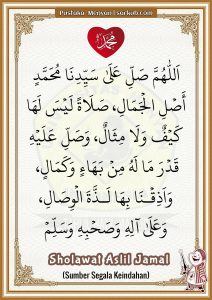 Pustaka: MenyanTsorkeb.com
محمد
اَللّٰهُمَّ صَلِّ عَلٰى سَيِّدِنَا مُحَمَّدٍ
أَصْلِ الْجَمَالِ، صَلَاةً لَيْسَ لَهَا
كَيْفٌ وَلَا مِثَالٌ، وَصَلِّ عَلَيْهِ
قَدْرَ مَا لَهُ مِنْ بَهَاءٍ وَكَمَالٍ،
وَأَذِقْنَا بِهَا لَذَّةَ الْوِصَالِ،
وَعَلٰى آلِهِ وَصَحْبِهِ وَسَلِّمْ
Sholawat Aslil Jamal
(Sumber Segala Keindahan)